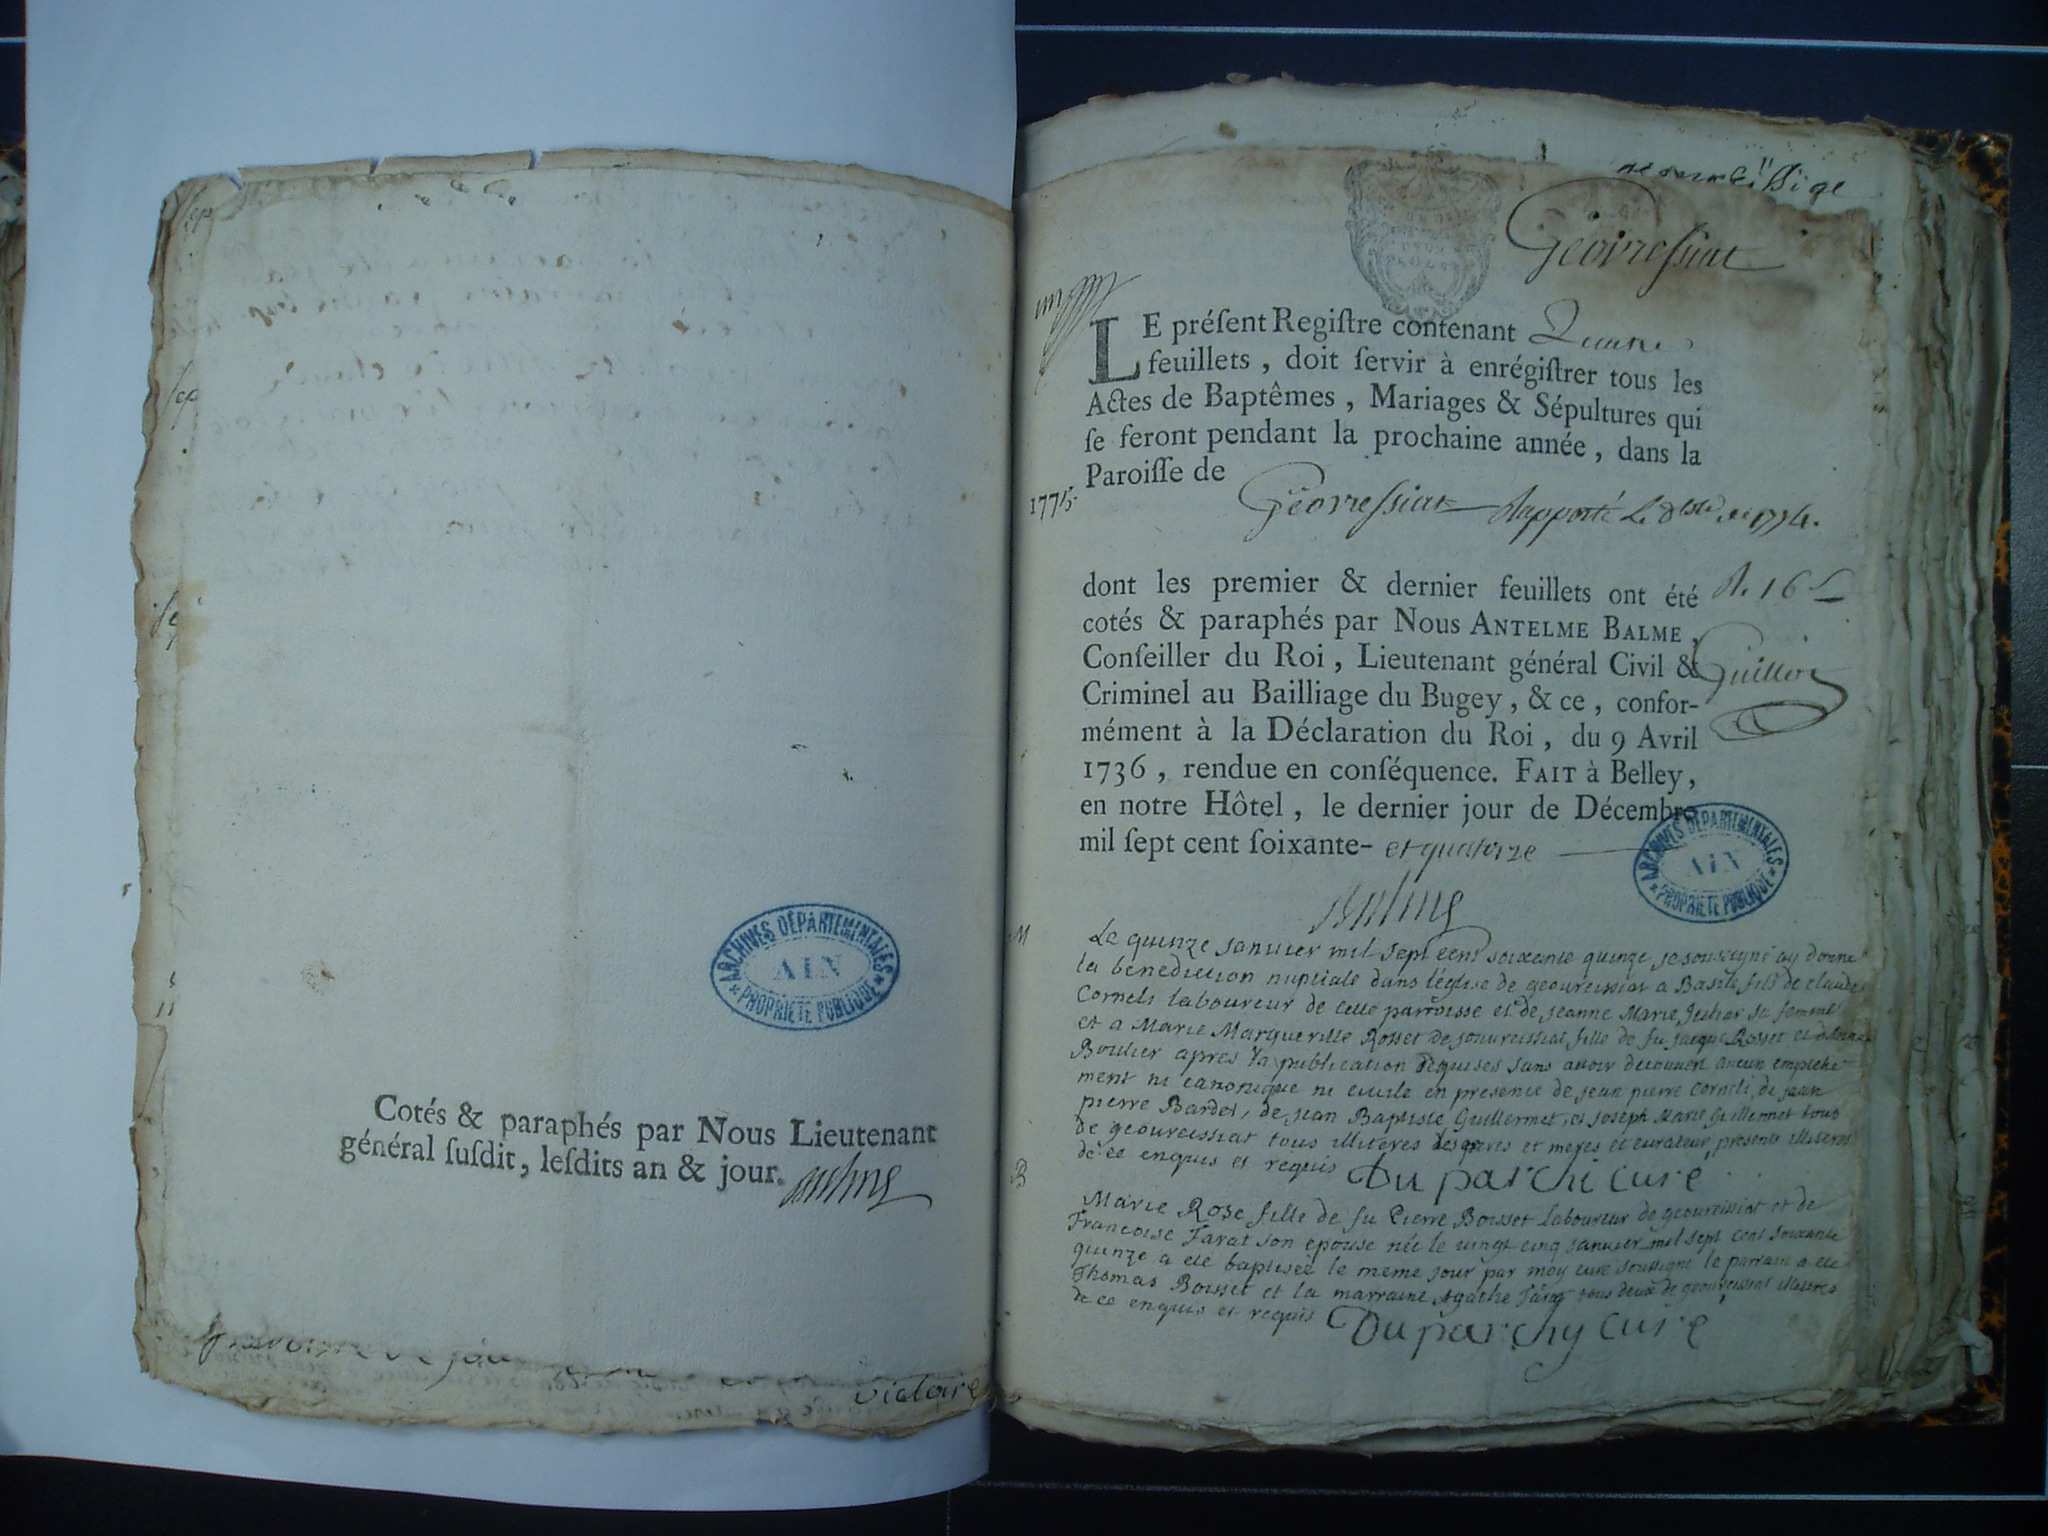 Cotés & paraphés par Nous Lieutenant
général susdit, lesdits an & jour.
ARCHIVES DÉPARTEMENTALES
AIN
PROPRIÉTÉ PUBLIQUE
victoire
Geovressiat
LE préſent Regiſtre contenant
feuillets, doit ſervir à enrégiſtrer tous les
Actes de Baptêmes, Mariages & Sépultures qui
ſe feront pendant la prochaine année, dans la
Paroiſſe de
1775.
Geovressiat 1774.
dont les premier & dernier feuillets ont été
cotés & paraphés par Nous ANTELME BALME,
Conſeiller du Roi, Lieutenant général Civil &
Criminel au Bailliage du Bugey, & ce, confor-
mément à la Déclaration du Roi, du 9 Avril
1736, rendue en conſéquence. FAIT à Belley,
en notre Hôtel, le dernier jour de Décembre
mil ſept cent ſoixante- et quatorze
ARCHIVES DÉPARTEMENTALES
AIN
PROPRIÉTÉ PUBLIQUE
M
Le quinze janvier mil sept cent soixante quinze je soussigné ay donné
la benediction nuptiale dans l'église de geovreissiat a Basile fils de claude
Cornets laboureur de cette parroisse et de jeanne Marie sa femme
et a Marie Marguerite Rosset de fille de fu jacque Rosset et
Boulier apres la publication requises sans avoir decouvert aucun empeche
ment ni canonique ni civile en presence de jean pierre Corneli, de jean
pierre Bardet, de jean Baptiste Guillermet, et joseph Marie Guillermet tous
de geovreissiat tous illiteres les peres et meres et curateur presents illiteres
de ce enquis et requis Duparchi curé
B
Marie Rose fille de fu Pierre Boisset laboureur de geovreissiat et de
Francoise Tarat son epouse née le vingt cinq janvier mil sept cent soixante
quinze a eté baptisée le meme jour par moy curé soussigné le parrain a eté
Thomas Boisset et la marraine Agathe Tarat tous deux de geovreissiat illiteres
de ce enquis et requis Duparchy curé